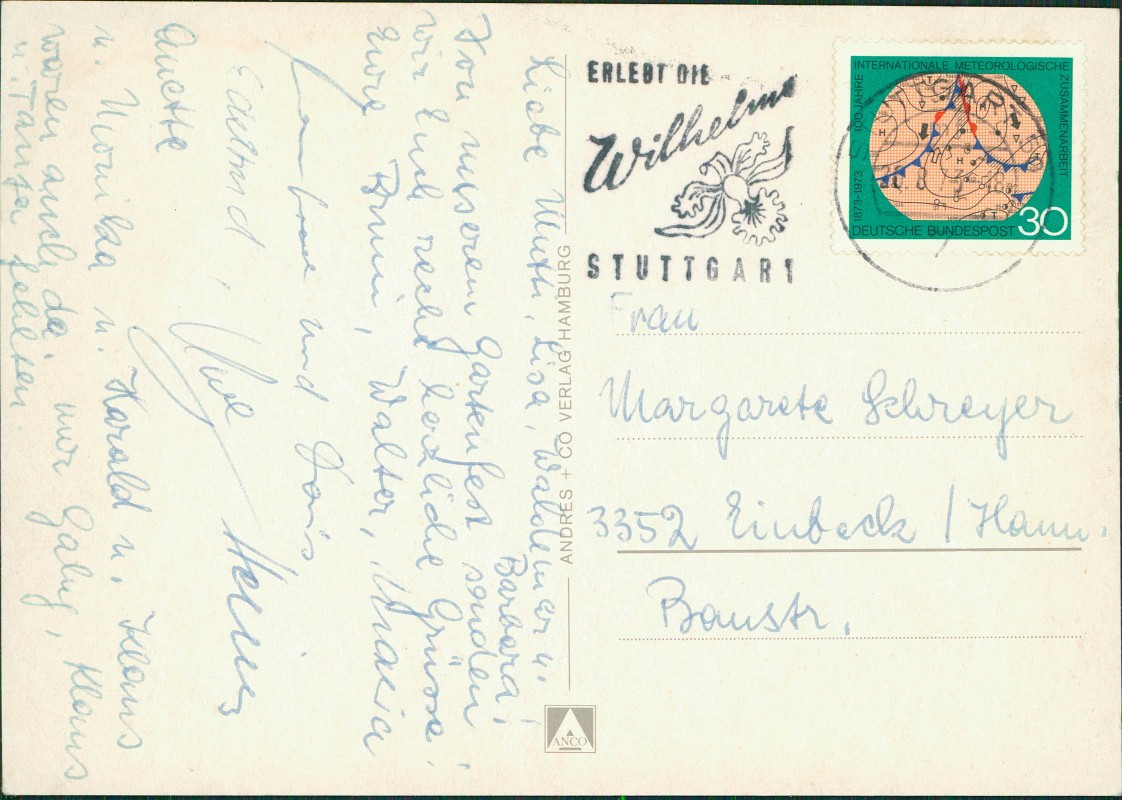 Liebe Mutti, Lisa, Waldemar u.
Barbara!
Von unserem Gartenfest senden
wir Euch recht herzliche Grüsse.
Eure Romi, Walter, Maria
und Doris
Edmund,
Anette
u. Monika u. Harald u. Klaus
waren auch da. nur Gaby, Klaus
u. Tanja fehlten.
ANDRES + CO VERLAG HAMBURG
ANCO
ERLEBT DIE
Wilhelma
STUTTGART
INTERNATIONALE METEOROLOGISCHE
ZUSAMMENARBEIT
1873-1973 100 JAHRE
DEUTSCHE BUNDESPOST 30
Frau
Margarete Schreyer
3352 Einbeck / Hann.
Baustr.